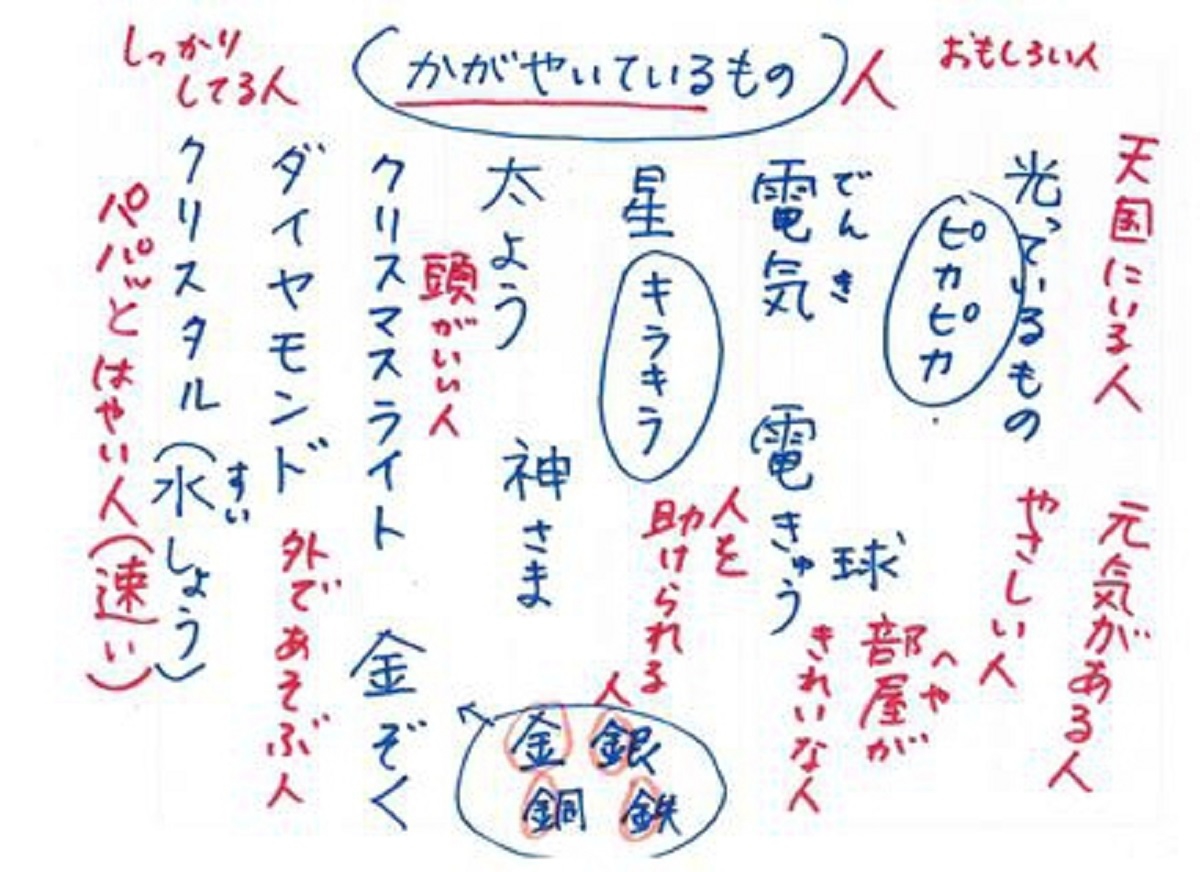 おもしろい人
かがやいているもの
人
しっかり
してる人
天国にいる人
元気がある人
光っているもの
ピカピカ
やさしい人
でんき
電気
電きゅう
球
へや
部屋が
きれいな人
星
キラキラ
人を
助けられる
人
太よう
神さま
頭がいい人
クリスマスライト
金ぞく
金 銀
銅 鉄
ダイヤモンド
外であそぶ人
クリスタル(水しょう)
すい
パパッとはやい人(速い)